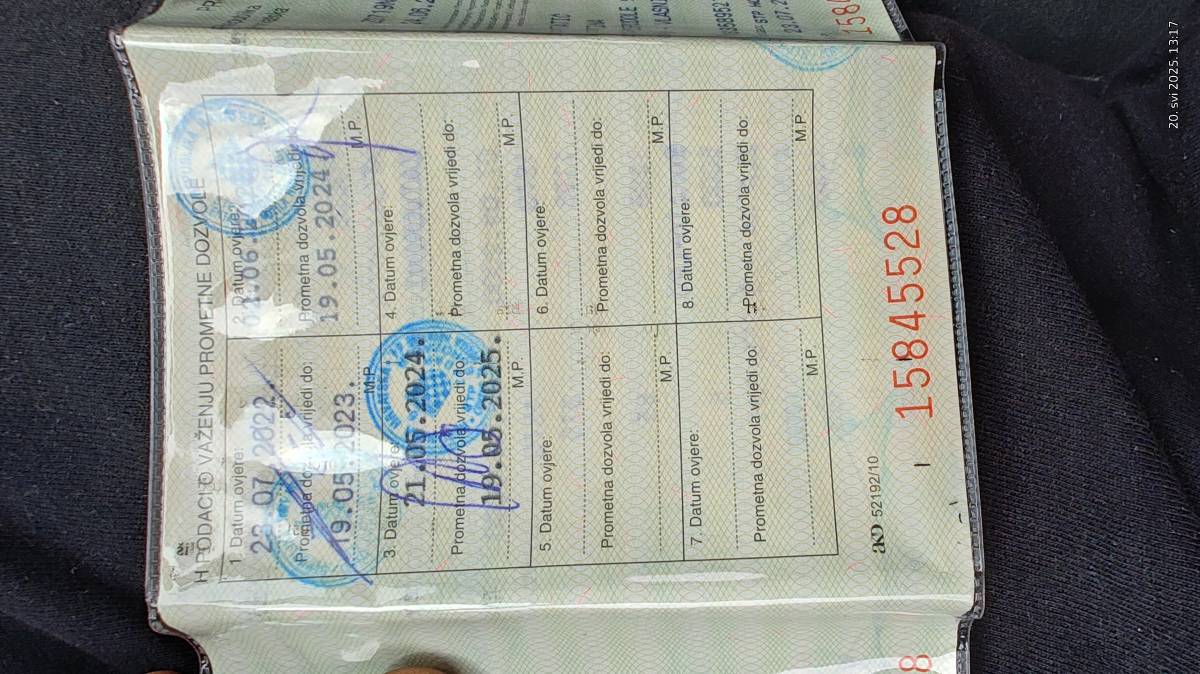 20. svi 2025. 13:17
H PODACI O VAŽENJU PROMETNE DOZVOLE
1. Datum ovjere:
23.07.2022.
Prometna dozvola vrijedi do:
19.05.2023.
M.P.
2. Datum ovjere:
Prometna dozvola vrijedi do:
19.05.2024
M.P.
3. Datum ovjere:
21.05.2024.
Prometna dozvola vrijedi do:
19.05.2025.
M.P.
4. Datum ovjere:
Prometna dozvola vrijedi do:
M.P.
5. Datum ovjere
Prometna dozvola vrijedi do:
M.P
6. Datum ovjere:
Prometna dozvola vrijedi do:
M.P.
7. Datum ovjere:
Prometna dozvola vrijedi do:
M.P
8. Datum ovjere:
Prometna dozvola vrijedi do:
M.P.
52192/10
15845528